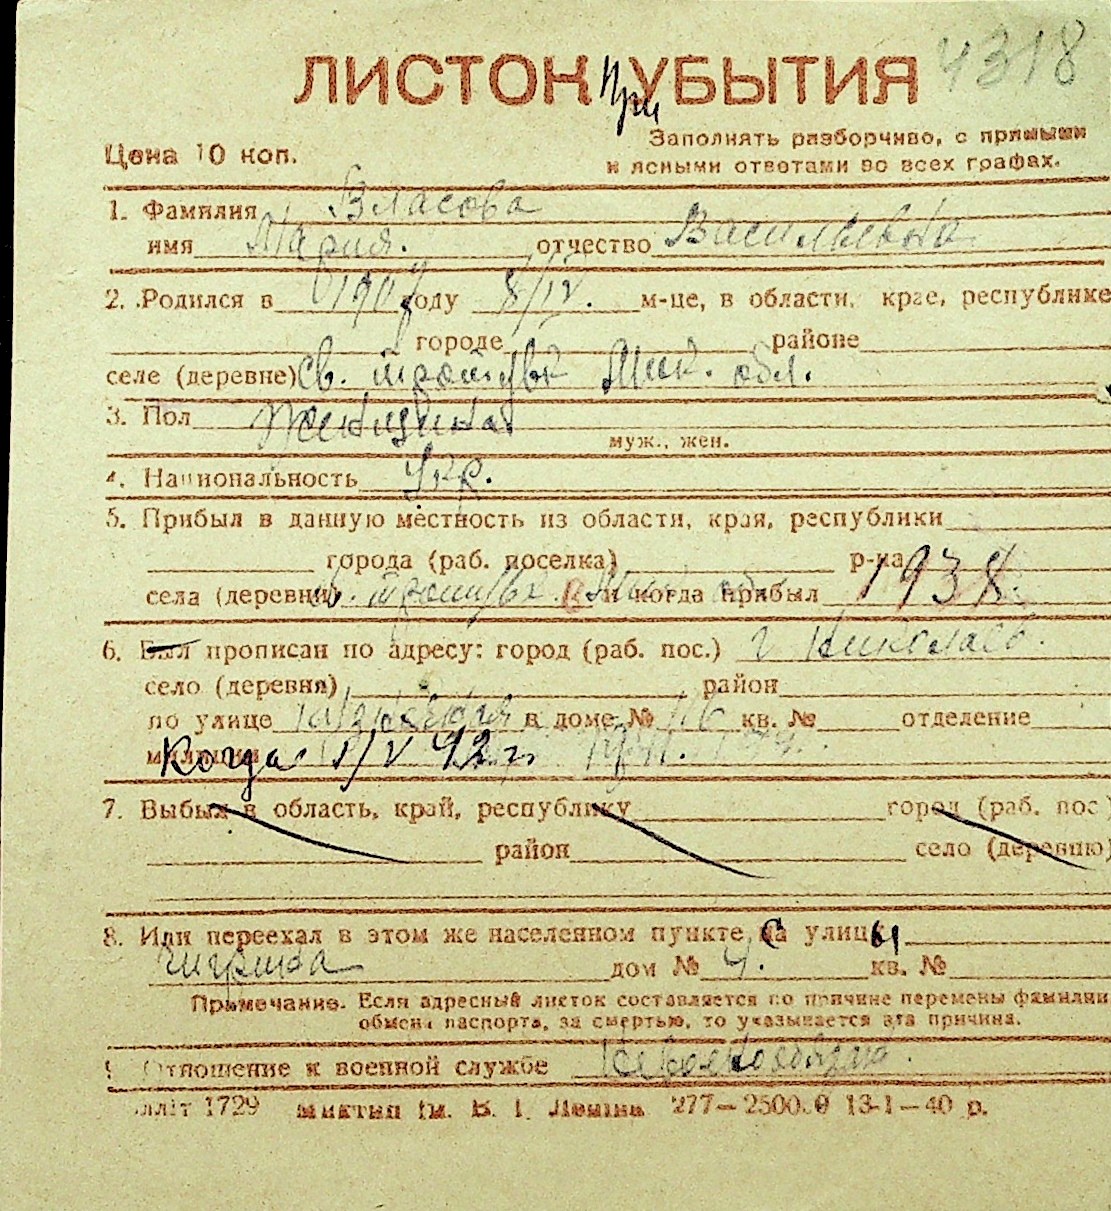 ЛИСТОК При УБЫТИЯ 4318
Заполнять разборчиво, с прямыми
Цена 10 коп.
и ясными ответами во всех графах.
1. Фамилия Власова
имя Мария. отчество Васильевна
2. Родился в 1909 году 8/IV. м-це, в области, крае, республике
городе районе
селе (деревне) Св. Ник. обл.
3. Пол Женщина
муж., жен.
4. Национальность Укр.
5. Прибыл в данную местность из области, края, республики
города (раб. поселка) р-на
села (деревни) и когда прибыл 1938.
6. Был прописан по адресу: город (раб. пос.) г Николаев.
село (деревня) район
по улице в доме № 116 кв. № отделение
милиции Когда 1/V 42 г.
7. Выбыл в область, край, республику город (раб. пос.)
район село (деревню)
8. Или переехал в этом же населенном пункте с улицы
дом № 4. кв. №
Примечание. Если адресный листок составляется по причине перемены фамилии
обмена паспорта, за смертью, то указывается эта причина.
9. Отношение к военной службе Невоенообязана.
Облліт 1729 Миктип Ім. В. І. Леніна 277—2500.0 13-1—40 р.